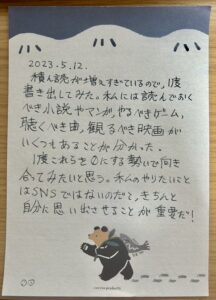 2023.5.12.
積ん読が増えすぎているので、1度
書き出してみた。私には読んでおく
べき小説やマンガ、やるべきゲーム、
聴くべき曲、観るべき映画が
いくつもあることが分かった。
1度これらを0にする勢いで向き
合ってみたいと思う。私のやりたいこと
はSNSではないのだと、きちんと
自分に思い出させることが重要だ!